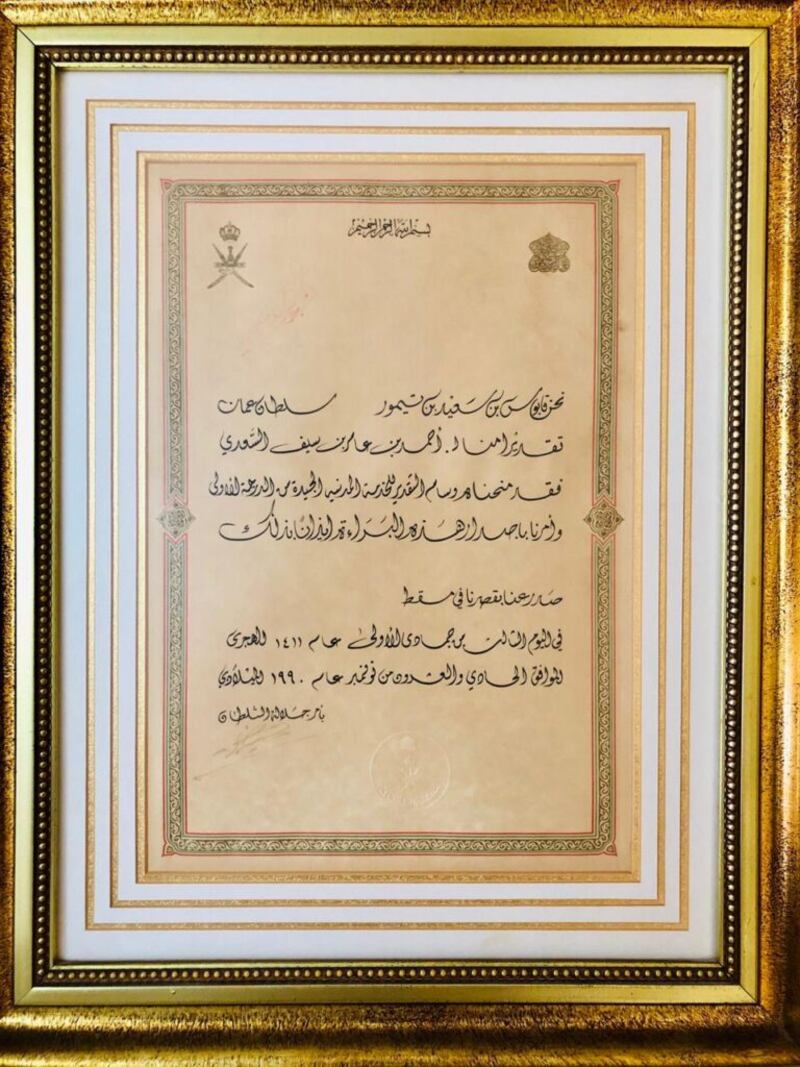 بسم الله الرحمن الرحيم
نحن قابوس بن سعيد بن تيمور سلطان عمان
تقديرا منا لـ. أحمد بن عامر بن سيف السعدي
فقد منحناه وسام التقدير للخدمة المدنية الجيدة من الدرجة الأولى
وأمرنا بإصدار هذه البراءة إيذانا بذلك
صدر عنا بقصرنا في مسقط
في اليوم الثالث من جمادى الأولى عام ١٤١١ للهجرى
الموافق الحادي والعشرون من نوفمبر عام ١٩٩٠ الميلادي
بأمر جلالة السلطان